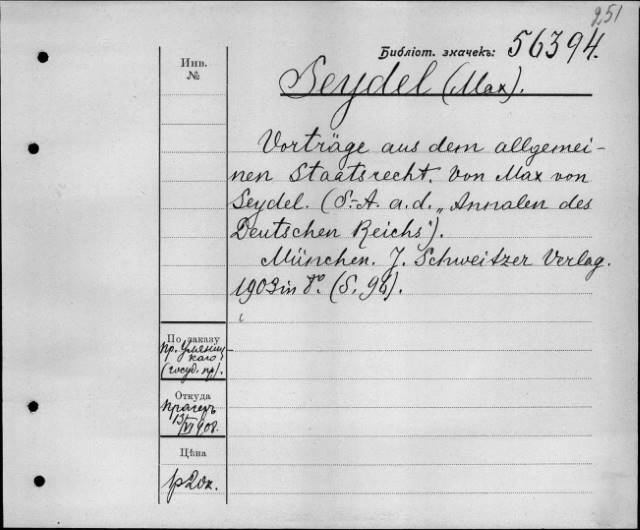 251
Библіот. значекъ: 56394.
Инв.
№
Seydel (Max).
Vorträge aus dem allgemei-
nen Staatsrecht. Von Max von
Seydel. (S.-A. a. d. „Annalen des
Deutschen Reichs“).
München. J. Schweitzer Verlag.
1903 in 8°. (S. 96).
По заказу
пр. Уляниц-
каго
(госуд. пр).
Откуда
Прагеръ
13/VI 908.
Цѣна
1р 20к.